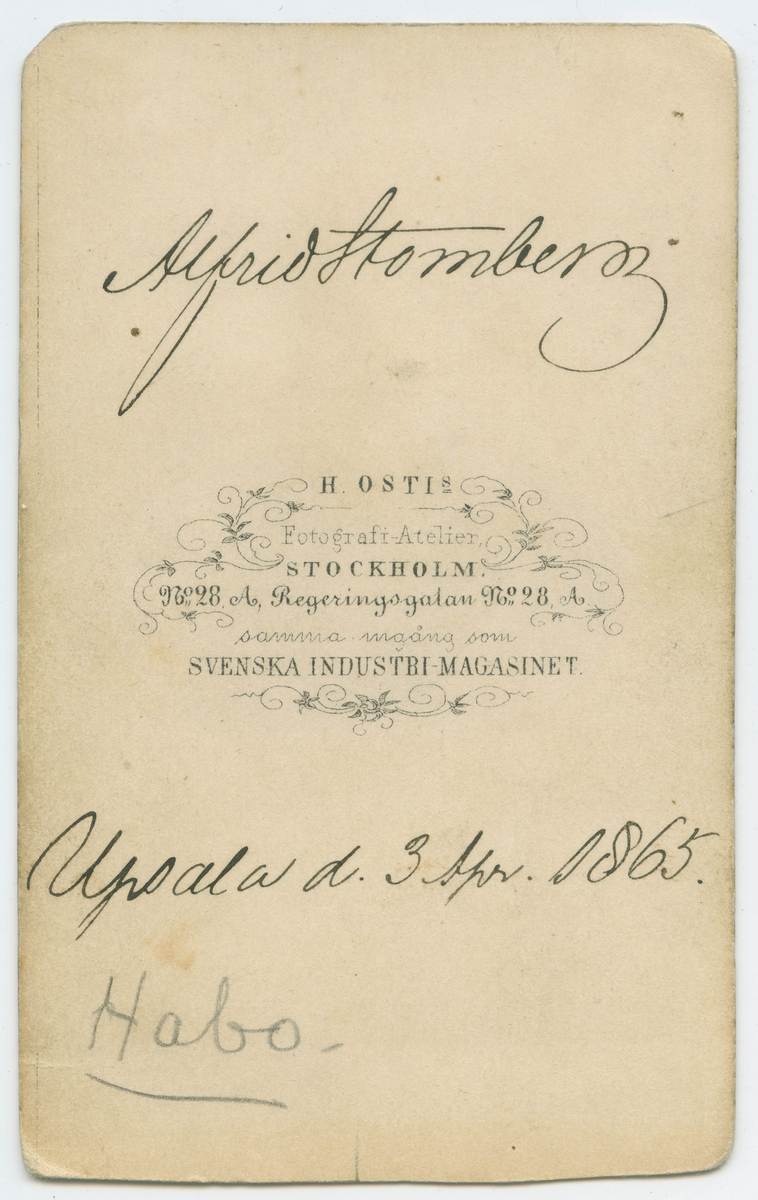 Alfrid Stomberg
H. OSTIS
Fotografi-Atelier,
STOCKHOLM.
No 28, A, Regeringsgatan No 28, A
samma ingång som
SVENSKA INDUSTRI-MAGASINET.
Upsala d. 3 Apr. 1865.
Habo.